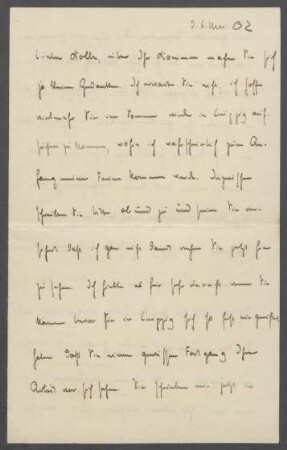 d. 6. Mai. 02
Lieber Kolbe, über Ihr Kommen machen Sie sich
ja keine Gedanken. Ich erwarte Sie nicht, ich hoffe
vielmehr Sie im Sommer wieder in Leipzig auf
suchen zu können, wohin ich wahrscheinlich zum An-
fang meiner Ferien kommen werde. Inzwischen
schreiben Sie bitte ab und zu und seien Sie ver-
sichert daß ich gar nicht damit rechne Sie jetzt hier
zu sehen. Ich halte es für sehr wenn Sie
kommen bevor Sie in Leipzig sich so fest
haben daß Sie einen gewissen Fortgang Ihrer
Arbeit vor sich sehen. Sie schrieben mir jetzt